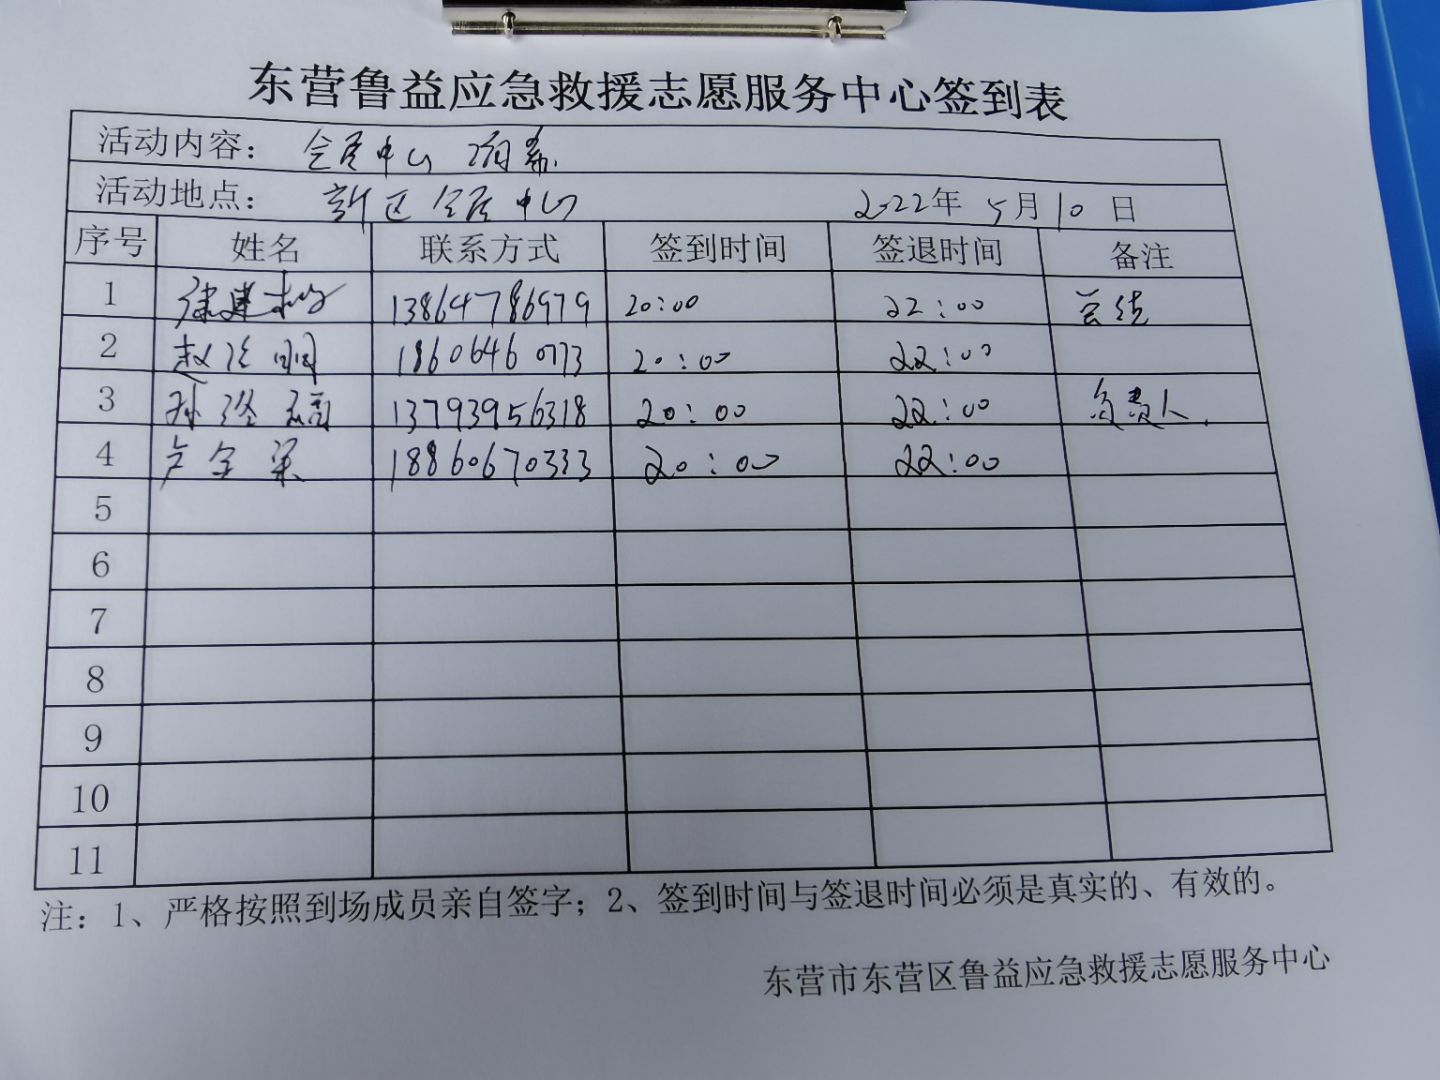 东营鲁益应急救援志愿服务中心签到表
活动内容：会展中心消杀.
活动地点：新区会展中心 2022年5月10日
序号 姓名 联系方式 签到时间 签退时间 备注
1 13864786979 20:00 22:00
2 赵 18606460773 20:00 22:00
3 孙 13793956318 20:00 22:00 负责人.
4 卢 18860670333 20:00 22:00
5
6
7
8
9
10
11
注：1、严格按照到场成员亲自签字；2、签到时间与签退时间必须是真实的、有效的。
东营市东营区鲁益应急救援志愿服务中心